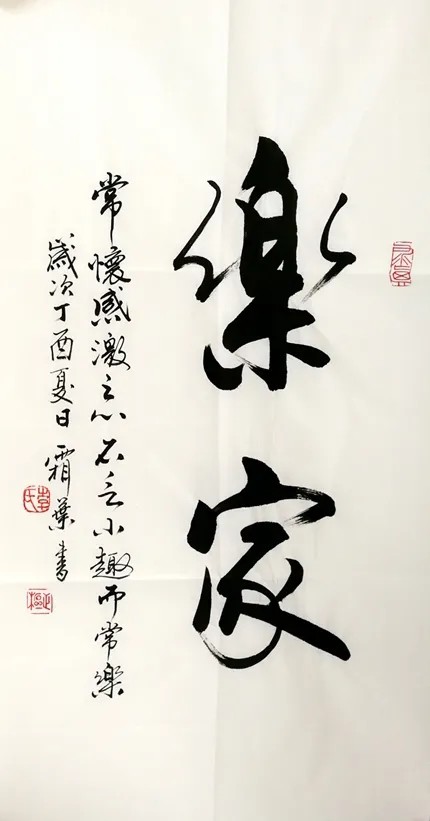 樂家
常懷感激之心不乏小趣而常樂
歲次丁酉夏日霜葉書